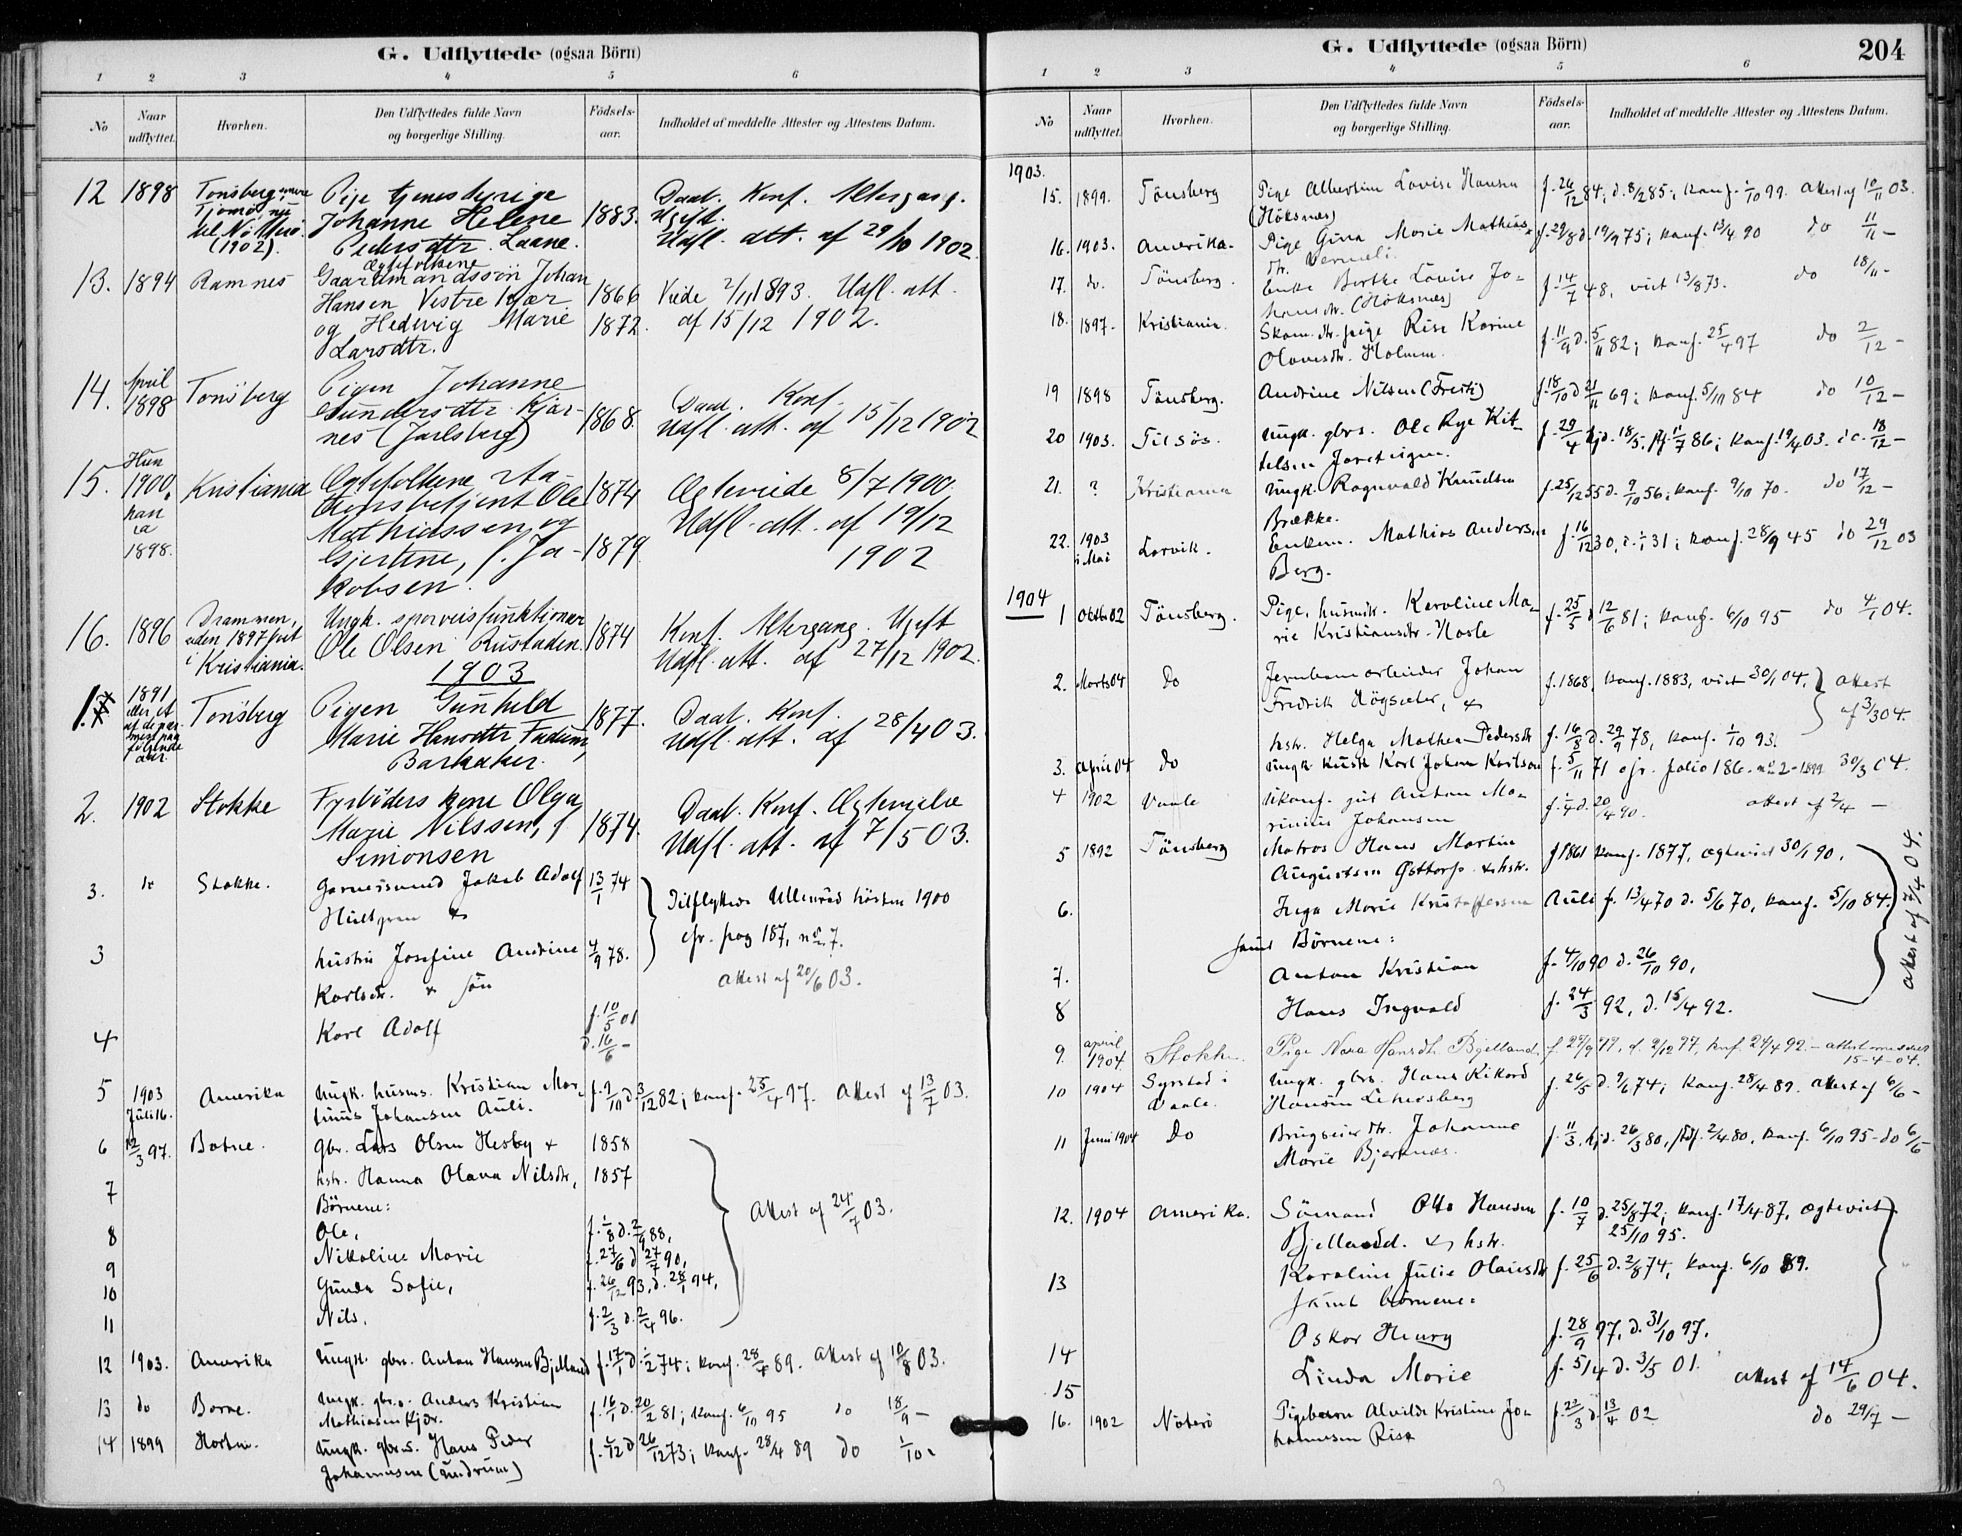 G. Udflyttede (ogsaa Börn)
1 2 3 4 5 6
No
Naar udflyttet.
Hvorhen.
Den Udflyttedes fulde Navn
og borgerlige Stilling.
Födsels-
aar.
Indholdet af meddelte Attester og Attestens Datum.
12 1898 Tønsberg
til Nötterö
(1902).
Pige tjenestepige
Johanne Helene
Pedersdtr. Laane.
1883.
Daab. Konf. Altergang.
Ugift.
Udfl. att. af 29/10 1902
13. 1894 Ramnes
Ægtefolkene
Gaardmandssön Johan
Hansen Vestre Kjær
og Hedevig Marie
Larsdtr.
1866
1872.
Viede 2/11 1893. Udfl. att.
af 15/12 1902.
14. April
1898 Tønsberg
Pigen Johanne
Gundersdtr. Kjær-
nes (Jarlsberg)
1868.
Daab. Konf.
Udfl. att. af 15/12 1902
15. Hun
1900,
han
ca
1898.
Kristiania
Ægtefolkene Sta-
tionsbetjent Ole
Mathiassen og
Gjertine, f. Ja-
kobsen.
1874
1879.
Ægteviede 8/7 1900.
Udfl. att. af 19/12
1902
16. 1896 Drammen,
siden 1897 flyt
i Kristiania.
Ungk. sporveisfunktionær
Ole Olsen Rustaden.
1874
Konf. Altergang. Ugift
Udfl. att. af 27/12 1902.
1903
1. 1891
eller et
af de nær-
mest paa
følgende
aar.
Tønsberg
Pigen Gunhild
Marie Hansdtr Fadum,
Barkaker.
1877.
Daab. Konf.
Udfl. att. af 28/4 03.
2. 1902 Stokke
Fyrböders kone Olga
Marie Nilssen, f.
Simonsen
1874.
Daab. Konf. Ægtevielse
Udfl. att. af 7/5 03.
3. Stokke.
Garversvend Jakob Adolf
Hultgren &
13/1 74
Tilflyttede Ullensrød hösten 1900
cfr. pag 187, no 7.
3
hustru Josefine Andrine
Karlsdtr. & sön
4/9 78.
attest af 20/6 03.
4 Karl Adolf
f. 10/5 01
d. 16/6 –
5 1903
Juli 16. Amerika
Ungk. husms. Kristian Mar-
tinius Johansen Auli.
f. 2/10 d. 3/12 82; konf. 25/4 97. Attest af 13/7 03.
6 12/3 97. Botne.
gbr. Lars Olsen Hesby &
1858
7 hstr. Hanna Olava Nilsdtr,
1857
Börnene:
Attest af 24/7 03.
8 Ole,
f. 1/8 d. 2/9 88,
9 Nikoline Marie
f. 27/6 d. 27/7 90,
10 Gunda Sofie,
f. 26/12 93, d. 28/1 94,
11 Nils.
f. 2/3 d. 2/4 96.
12 1903. Amerika
Ungk. gbrs. Anton Hansen Bjelland
f. 17/1 d. 1/2 74; konf. 28/4 89. Attest af 10/8 03.
13 do Borre.
Ungk. gbrs. Anders Kristian
Mathiasen Kjær.
f. 16/1 d. 20/2 81; konf. 6/10 95 do 18/9 –
14 1899 Horten.
Ungk. gbrs. Hans Peder
Johannesen (Undrum)
f. 2/12 d. 26/12 73; konf. 28/4 89 do 1/10 –
G. Udflyttede (ogsaa Börn)
204
1 2 3 4 5 6
No
Naar udflyttet.
Hvorhen.
Den Udflyttedes fulde Navn
og borgerlige Stilling.
Födsels-
aar.
Indholdet af meddelte Attester og Attestens Datum.
1903.
15. 1899. Tönsberg
Pige Albertine Lovise Hansen
(Höksnes)
f. 26/12 84; d. 8/2 85; konf. 1/10 99. Attest af 10/11 03.
16. 1903. Amerika.
Pige Gina Marie Mathias-
dtr. Vermeli.
f. 29/8 d. 19/9 75; konf. 13/4 90 do 11/11 –
17. do. Tönsberg.
Enke Berthe Lovise Jo-
hansdtr. (Höksnes)
f. 14/7 48, viet 13/8 73. do 18/11 –
18. 1897. Kristiania.
Skom. dtr. pige Risa Karine
Olavesdtr. Holmen.
f. 11/9 d. 5/11 82; konf. 25/4 97 do 2/12 –
19 1898 Tönsberg.
Andrine Nilsen (Fresti)
f. 18/10 d. 21/11 69; konf. 5/10 84 do 10/12 –
20 1903. Tilsös.
Ungk. gbrs. Ole Rye Kit-
telsen Jareteigen.
f. 29/4 hjd. 18/5. 11/7 86; konf. 19/4 03. do. 18/12 –
21. ? Kristiania
Ungk. Ragnvald Knudsen
Brække.
f. 25/12 55 d. 9/10 56; konf. 9/10 70. do 17/12 –
22. 1903
i Mai Larvik.
Enkem. Mathias Andersen
Berg.
f. 16/12 30, d. 1/1 31; konf. 28/9 45 do 29/12 03
1904
1 Oktb 02 Tönsberg.
Pige, husmdtr. Karoline Ma-
rie Kristiansdtr. Hasle
f. 25/5 d. 12/6 81; konf. 6/10 95 do 4/1 04.
2. Marts 04 Do
Jernbanearbeider Johan
Fredrik Högsæter, &
f. 1868, konf. 1883, viet 30/1 04.
attest
af 3/3 04.
hstr. Helga Mathea Pedersdtr
f. 16/8 d. 29/9 78, konf. 1/10 93.
3. April 04 Do
Ungk. kusk Karl Johan Karlsen
f. 5/11 71 cfr. folio 186. no 2 – 1899 30/3 04.
4 1902 Vaale
Ukonf. gut Anton Ma-
rinius Johansen
f. 1/4 d. 20/4 90. attest af 2/4 –
5 1892 Tönsberg
Matros Hans Martin
Augustsen Østtorp & hstr.
f 1861 konf. 1877, ægteviet 30/1 90.
6. Inga Marie Kristoffersen Auli
f. 13/4 70 d. 5/6 70, konf. 5/10 84.
attest af 7/4 04.
samt Börnene:
7. Anton Kristian
f. 4/10 90 d. 26/10 90,
8 Hans Ingvald
f. 24/3 92, d. 15/4 92.
9. april
1904 Stokke.
Pige Nora Hansdtr Bjelland.
f. 29/9 77, d. 2/12 77, konf. 24/4 92. – attest
15-4-04.
10 1904 Syrstad i
Vaale.
Ungk. gbrs. Hans Rikard
Hansen Lehersberg
f. 26/5 d. 9/6 74; konf. 28/4 89. attest af 6/6 –
11 Juni 1904 Do
Brugseier dtr. Johanne
Marie Bjerknes.
f. 11/3. hjd. 26/3 80, stdf. 2/4 80, konf. 6/10 95 – do 6/6
12. 1904 Amerika.
Sömand Otto Hansen
Bjelland. & hstr.
f. 10/7 d. 25/8 72; konf. 17/4 87, ægteviet
25/10 95.
13 Karoline Julie Olausdtr
f. 25/6 d. 2/8 74, konf. 6/10 89.
samt börnene:
14 Oskar Henry
f. 28/9 97, d. 31/10 97.
15 Linda Marie
f. 5/4 d. 3/5 01.
Attest af 14/6 04.
16. 1902 Nöterö
Pigebarn Alvilde Kristine Jo-
hannesen Risø
f. 22/3 d. 13/4 02 do 29/7 –